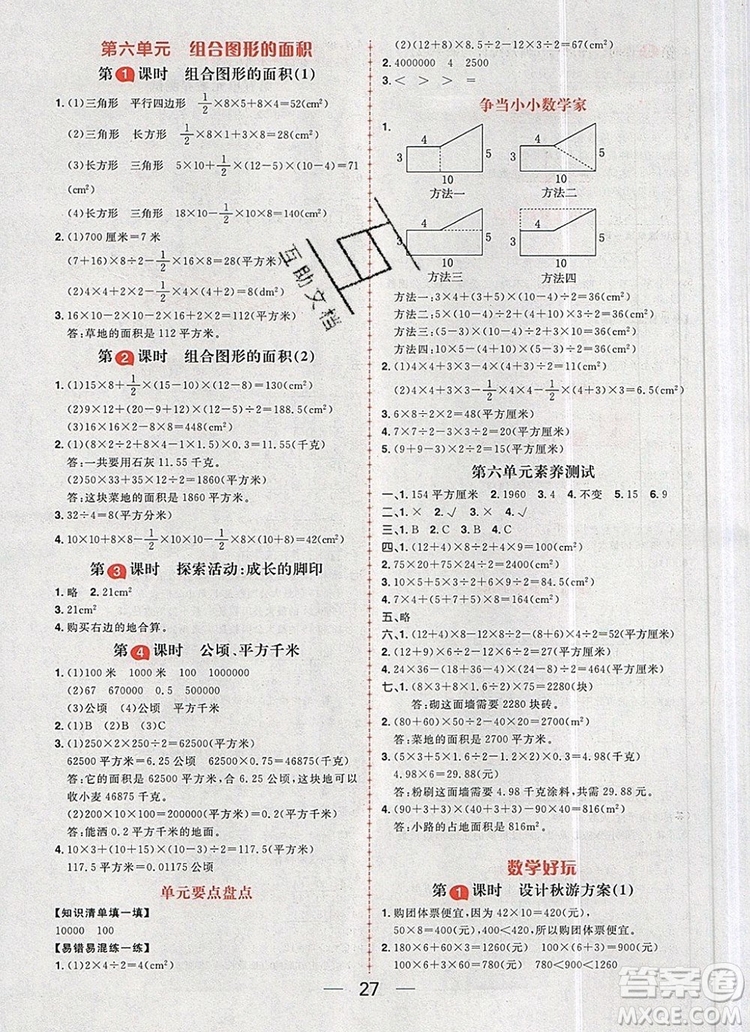 第六单元 组合图形的面积
第1课时 组合图形的面积(1)
1.(1)三角形 平行四边形 1/2×8×5+8×4=52(cm²)
(2)三角形 长方形 1/2×8×1+3×8=28(cm²)
(3)长方形 三角形 5×10+1/2×(12-5)×(10-4)=71
(cm²)
(4)长方形 三角形 18×10-1/2×10×8=140(cm²)
2.(1)700厘米=7米
(7+16)×8÷2-8×8=28(平方米)
(2)4×2+4×4÷2+(2+4)×4÷2=28(平方米)
3.16×10-2×10-2×16+2×2=112(平方米)
答:草地的面积是112平方米。
第2课时 组合图形的面积(2)
1.(1)15×8+1/2×(15-10)×(12-8)=130(cm²)
(2)9×12+9×12÷2=162(cm²)
(3)16×16×2-8×8=448(cm²)
2.(1)(8×2÷2+2.5×8+15×7÷2)×0.3=11.55(千克)
答:一共要用石灰11.55千克。
(2)50×33+35×12÷2=1860(平方米)
答:这块菜地的面积是1860平方米。
3.32÷4=8(平方分米)
4.10×10+8×8-1/2×10×(10+8)-1/2×8×8=42(cm²)
第3课时 探索活动:成长的脚印
1.略 2.21cm²
3.21cm²
4.购买右边的地合算。
第4课时 公顷、平方千米
1.(1)100 米 1000 1000
(2)67 670000 0.5 50
(3)平方米 公顷 平方千米
2.(1)B (2)B
3.(1)250×(2×250÷2)÷2=62500(平方米)
62500平方米=6.25公顷 62500×0.75=46875(千克)
答:它的面积是62500平方米,合6.25公顷,这块地可以
收小麦46875千克。
(2)200×10×100=200000(平方米)=0.2(平方千米)
答:能洒0.2平方千米的地面。
4.10×3+(10+15)×(10-3)÷2=117.5(平方米)
117.5平方米=0.01175公顷
单元要点盘点
【知识清单填一填】
10000 100
【易错易混练一练】
1.(1)2×4÷2=4(cm²)
(2)(12+8)×8.5÷2-12×5÷2=55(cm²)
2.4000000 4 0.5 50
3.< > > =
争当小小数学家
1.
4 3 5 10 方法一
4 3 5 10 方法二
4 3 5 10 方法三
4 3 5 10 方法四
方法一:3×4+(3+5)×(10-4)÷2=36(cm²)
方法二:(4+10)×3÷2+5×(10-4)÷2=36(cm²)
方法三:(5-3)×(10-4)÷2+3×10=36(cm²)
方法四:5×10-(4+10)×(5-3)÷2=36(cm²)
2.(1)4×4+5×5-1/2×4×4-1/2×(4+5)×5=10.5(cm²)
(2)4×4+2×2-1/2×4×4-1/2×(4+2)×2=6(cm²)
3.6×8÷2×2=48(平方厘米)
4.7×7÷2-3×3÷2=20(平方厘米)
5.(9+9-6)×5÷2÷2=15(平方厘米)
第六单元素养测试
一、1.154平方厘米 2.1960 3.4 4.不变 5.15 6.9
二、1.× 2.√ 3.× 4.√
三、1.B 2.B 3.B 4.C
四、1.(12+4)×8÷2+4×9=100(cm²)
2.75×20+75×24÷2=2400(cm²)
3.10×5+(10+5)×(9.6-5)÷2=84.5(cm²)
4.7×4+(5+7)×(5+5)÷2=88(cm²)
五、略
六、1.(12+4)×(12-4)÷2-(8+4)×4÷2=40(平方厘米)
2.9×5-9×5÷2-2×9÷2=13.5(平方厘米)
3.20×16-20×16÷2=160(平方厘米)
4.24×36-(24-18)×36÷2=756(平方厘米)
七、1.(8×3+8×1.8÷2-1.6×1.7)×80≈2280(块)
答:砌这面墙需要2280块砖。
2.(80+60)×50÷2-40×20=2700(m²)
答:菜地的面积是2700平方米。
3.(5×3+5×1.2÷2-1.4×1)×0.3=4.98(千克)
4.98×6=29.88(元)
答:粉刷这面墙需要4.98千克涂料,需要29.88元。
4.(200×8÷2+10×8÷2-8×6÷2=816(m²)
答:小路的占地面积是816m²。
数学好玩
第1课时 设计秋游方案(1)
1.购团体票便宜,因为42×10=420(元),
50×8=400(元),420>400,所以购团体票便宜。
2.180×6+60×3=1260(元) 100×9=900(元)
100×6+60×3=780(元) 780<900<1260
27
互助文档
答案圈
MXQE.COM